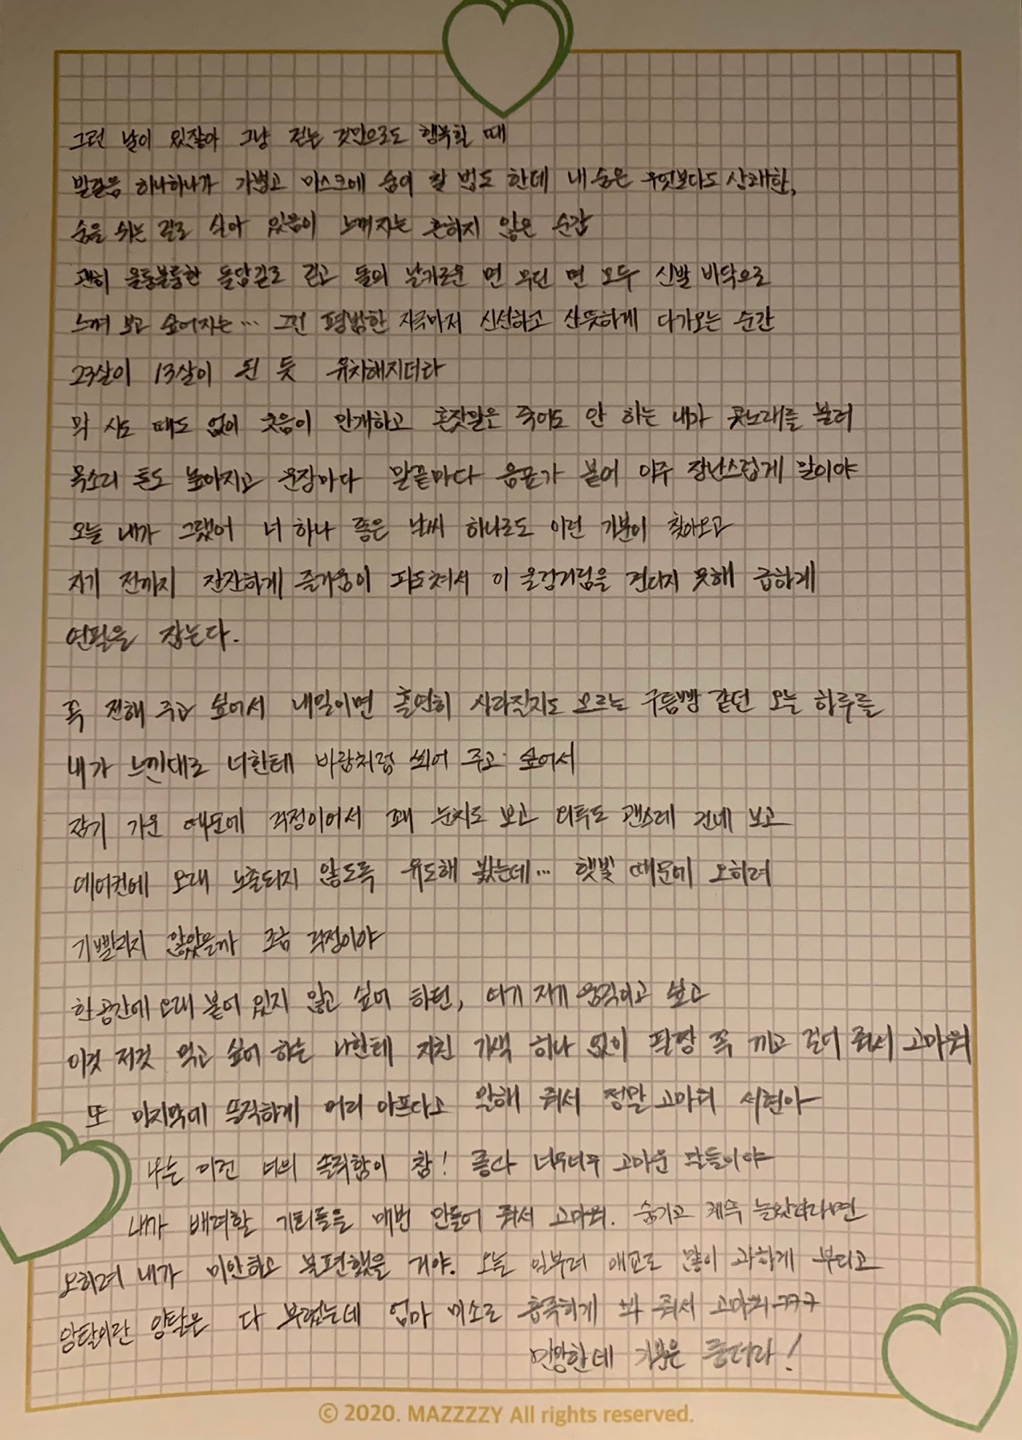 그런 날이 있잖아 그냥 걷는 것만으로도 행복할 때
발걸음 하나하나가 가볍고 마스크에 숨이 찰 법도 한데 내 숨은 무엇보다도 상쾌한,
숨을 쉬는 걸로 살아 있음이 느껴지는 흔하지 않은 순간
괜히 울퉁불퉁한 돌담길로 걷고 돌의 날카로운 면 무딘 면 모두 신발 바닥으로
느껴 보고 싶어지는... 그런 평범한 자극마저 신선하고 산뜻하게 다가오는 순간
23살이 13살이 된 듯 유치해지더라
막 시도 때도 없이 웃음이 만개하고 혼잣말은 죽어도 안 하는 내가 콧노래를 불러
목소리 톤도 높아지고 문장마다 말끝마다 음표가 붙어 아주 장난스럽게 말이야
오늘 내가 그랬어 너 하나 좋은 날씨 하나로도 이런 기분이 찾아오고
자기 전까지 잔잔하게 즐거움이 파도쳐서 이 울렁거림을 견디지 못해 급하게
연필을 잡는다.
꼭 전해 주고 싶어서 내일이면 홀연히 사라질지도 모르는 구름빵 같던 오늘 하루를
내가 느낀대로 너한테 바람처럼 쐬어 주고 싶어서
감기 기운 때문에 걱정이어서 꽤 눈치도 보고 외투도 괜스레 건네 보고
에어컨에 오래 노출되지 않도록 유도해 봤는데... 햇빛 때문에 오히려
기빨리지 않았을까 조금 걱정이야
한 공간에 오래 붙어 있지 않고 싶어 하던, 여기 저기 움직이고 싶고
이것 저것 먹고 싶어 하는 나한테 지친 기색 하나 없이 팔짱 꼭 끼고 걸어 줘서 고마워
또 마지막에 솔직하게 머리 아프다고 말해 줘서 정말 고마워 서현아
나는 이런 너의 솔직함이 참! 좋다 너무너무 고마운 말들이야
내가 배려할 기회들을 매번 만들어 줘서 고마워. 숨기고 계속 놀았더라면
오히려 내가 미안하고 불편했을 거야. 오늘 일부러 애교도 많이 과하게 부리고
앙탈이란 앙탈은 다 부렸는데 엄마 미소로 흡족하게 봐 줘서 고마워ㅋㅋㅋ
민망한데 기분은 좋더라!
© 2020. MAZZZZY All rights reserved.